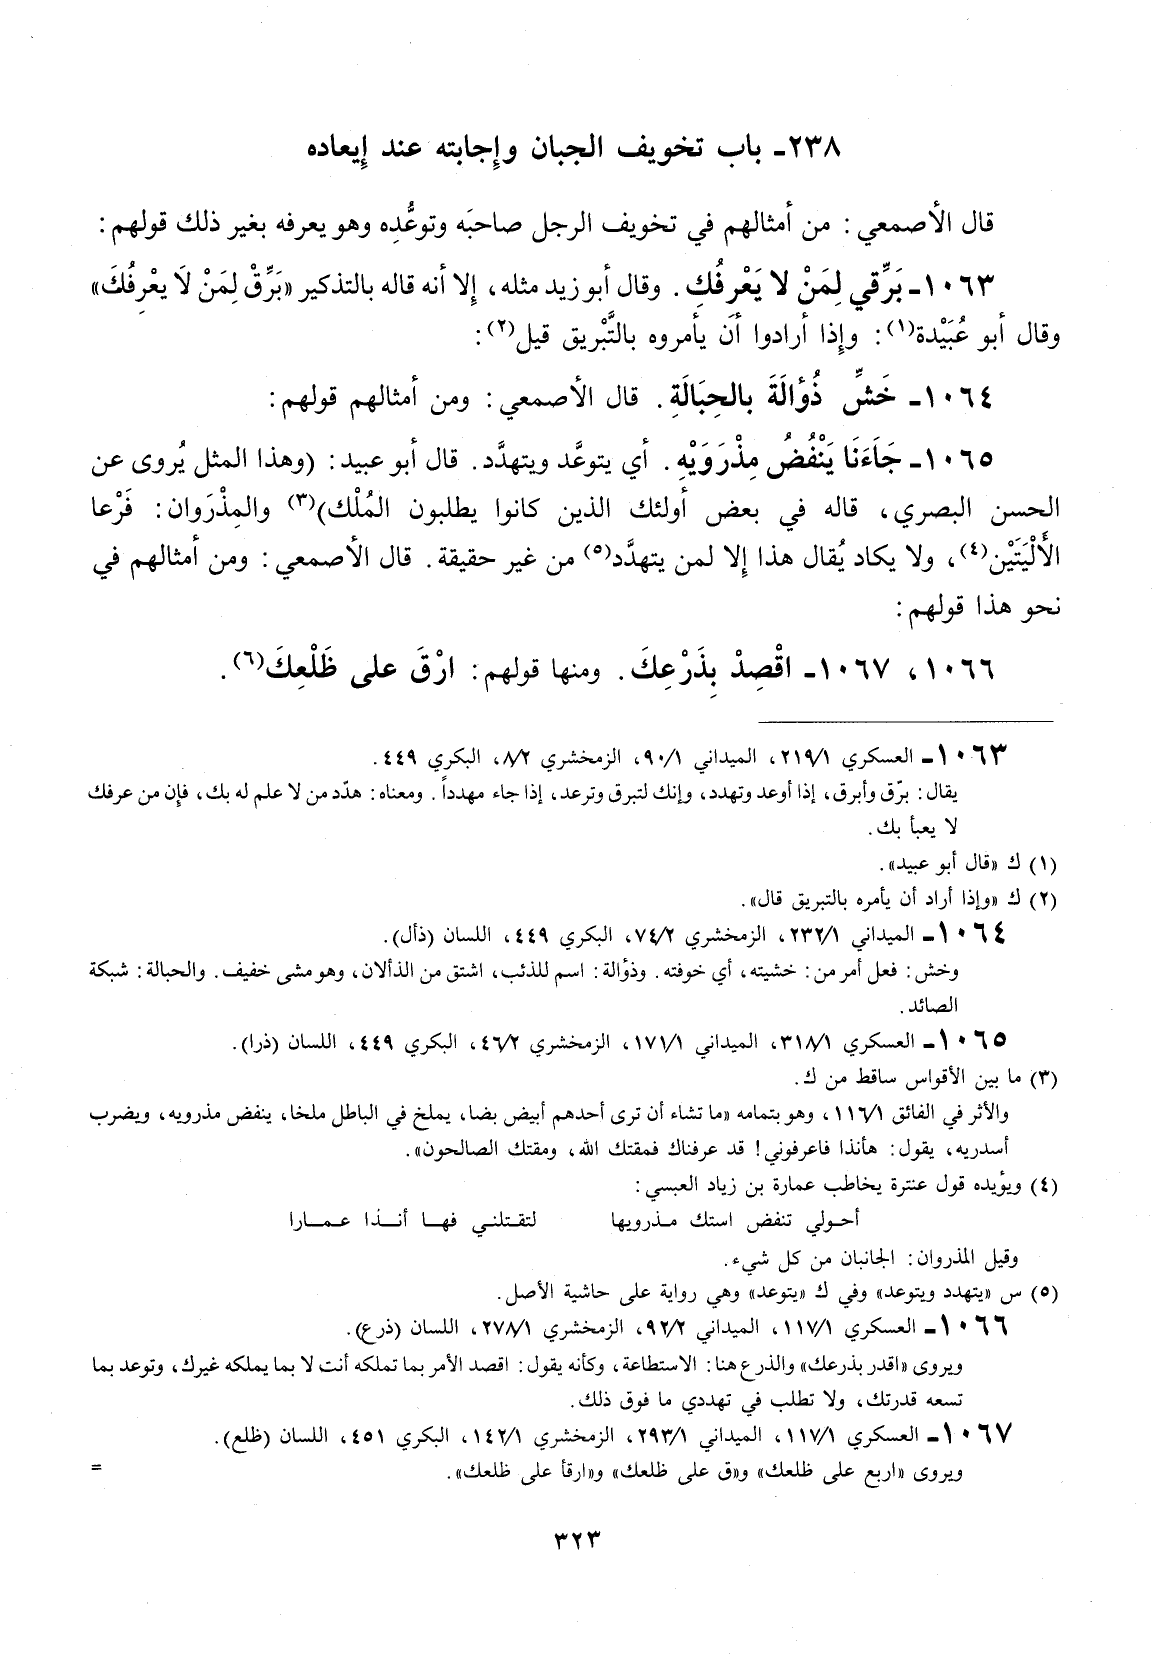 ٢٣٨ـ باب تخويف الجبان وإجابته عند إيعاده
قال الأصمعي: من أمثالهم في تخويف الرجل صاحبَه وتوعُّدِه وهو يعرفه بغير ذلك قولهم:
١٠٦٣ـ بَرِّقي لِمَنْ لا يَعْرِفُكِ. وقال أبو زيد مثله، إلا أنه قاله بالتذكير «بَرِّقْ لِمَنْ لَا يعْرِفُكَ»
وقال أبو عُبَيْدة(١): وإذا أرادوا أن يأمروه بالتَّبْريق قيل(٢):
١٠٦٤ـ خَشِّ ذُؤَالَةَ بالحِبَالَةِ. قال الأصمعي: ومن أمثالهم قولهم:
١٠٦٥ـ جَاءَنَا يَنْفُضُ مِذْرَوَيْهِ. أي يتوعَّد ويتهدَّد. قال أبو عبيد: (وهذا المثل يُروى عن
الحسن البصري، قاله في بعض أولئك الذين كانوا يطلبون المُلْك)(٣) والمِذْرَوان: فَرْعا
الأَلْيَتَيْن(٤)، ولا يكاد يُقال هذا إلا لمن يتهدَّد(٥) من غير حقيقة. قال الأصمعي: ومن أمثالهم في
نحو هذا قولهم:
١٠٦٦، ١٠٦٧ـ اقْصِدْ بِذَرْعِكَ. ومنها قولهم: ارْقَ على ظَلْعِكَ(٦).
١٠٦٣ـ العسكري ٢١٩/١، الميداني ٩٠/١، الزمخشري ٨/٢، البكري ٤٤٩.
يقال: برّق وأبرق، إذا أوعد وتهدد، وإنك لتبرق وترعد، إذا جاء مهدداً. ومعناه: هدّد من لا علم له بك، فإن من عرفك
لا يعبأ بك.
(١) ك «قال أبو عبيد».
(٢) ك «وإذا أراد أن يأمره بالتبريق قال».
١٠٦٤ـ الميداني ٢٣٢/١، الزمخشري ٧٤/٢، البكري ٤٤٩، اللسان (ذأل).
وخش: فعل أمر من: خشيته، أي خوفته. وذؤالة: اسم للذئب، اشتق من الذألان، وهو مشى خفيف. والحبالة: شبكة
الصائد.
١٠٦٥ـ العسكري ٣١٨/١، الميداني ١٧١/١، الزمخشري ٤٦/٢، البكري ٤٤٩، اللسان (ذرا).
(٣) ما بين الأقواس ساقط من ك.
والأثر في الفائق ١١٦/١، وهو بتمامه «ما تشاء أن ترى أحدهم أبيض بضا، يملخ في الباطل ملخا، ينفض مذرويه، ويضرب
أسدريه، يقول: هأنذا فاعرفوني! قد عرفناك فمقتك الله، ومقتك الصالحون».
(٤) ويؤيده قول عنترة يخاطب عمارة بن زياد العبسي:
أحولي تنفض استك مذرويها لتقتلني فها أنذا عمارا
وقيل المذروان: الجانبان من كل شيء.
(٥) س «يتهدد ويتوعد» وفي ك «يتوعد» وهي رواية على حاشية الأصل.
١٠٦٦ـ العسكري ١١٧/١، الميداني ٩٢/٢، الزمخشري ٢٧٨/١، اللسان (ذرع).
ويروى «اقدر بذرعك» والذرع هنا: الاستطاعة، وكأنه يقول: اقصد الأمر بما تملكه أنت لا بما يملكه غيرك، وتوعد بما
تسعه قدرتك، ولا تطلب في تهددي ما فوق ذلك.
١٠٦٧ـ العسكري ١١٧/١، الميداني ٢٩٣/١، الزمخشري ١٤٢/١، البكري ٤٥١، اللسان (ظلع).
ويروى «اربع على ظلعك» و«ق على ظلعك» و«ارقأ على ظلعك». =
٣٢٣